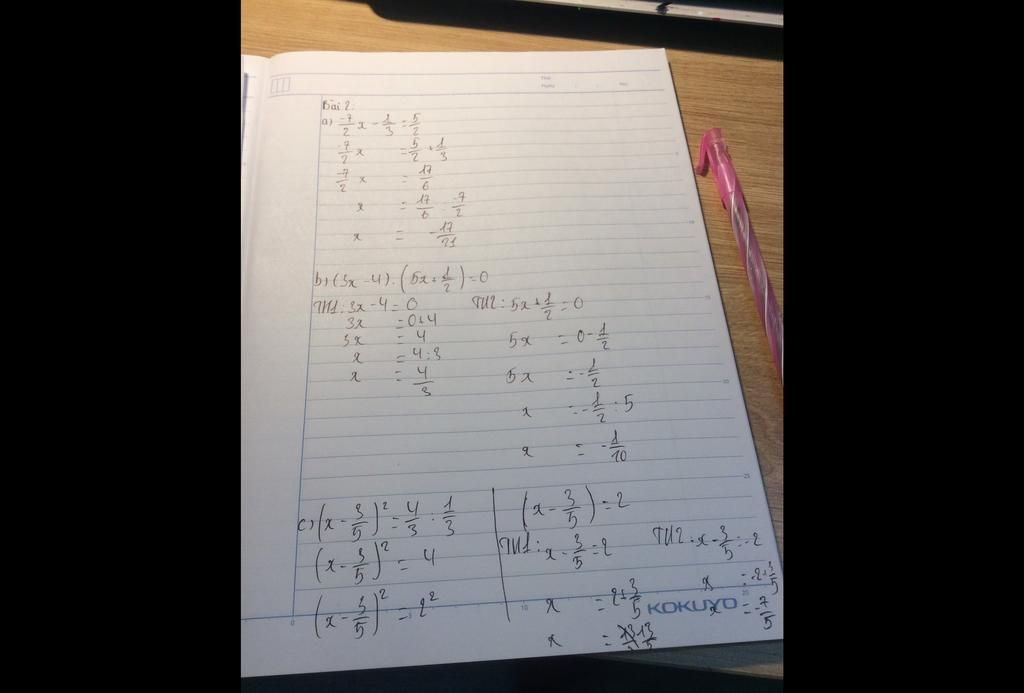 Bài 2.
a) -7/2 x - 1/3 = 5/2
-7/2 x = 5/2 + 1/3
-7/2 x = 17/6
x = 17/6 : -7/2
x = -17/21
b) (3x - 4). (5x + 1/2) = 0
TH1: 3x - 4 = 0
3x = 0+4
3x = 4
x = 4:3
x = 4/3
TH2: 5x + 1/2 = 0
5x = 0 - 1/2
5x = -1/2
x = -1/2 : 5
x = -1/10
c) (x - 3/5)² = 4/3 : 1/3
(x - 3/5)² = 4
(x - 3/5)² = 2²
(x - 3/5) = 2
TH1: x - 3/5 = 2
x = 2 + 3/5
x = 13/5
TH2: x - 3/5 = -2
x = -2 + 3/5
x = -7/5
KOKUYO